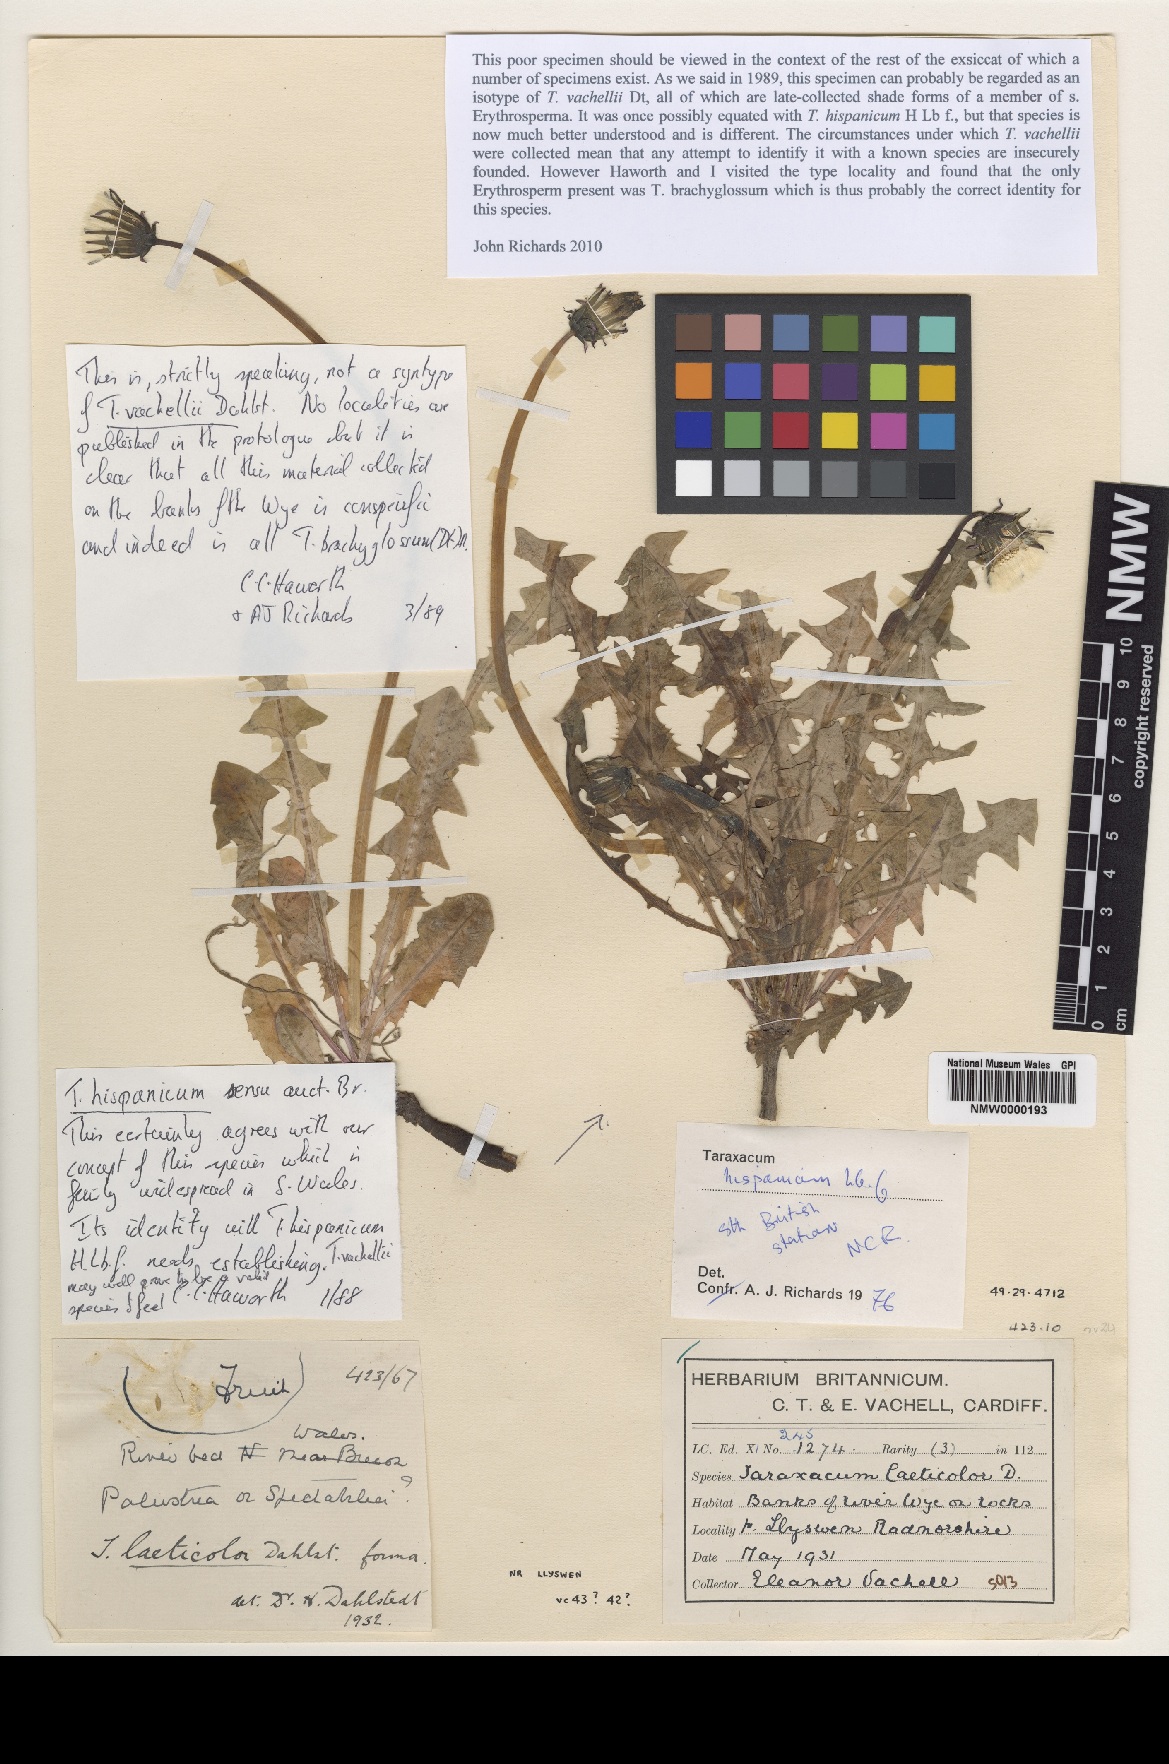 This poor specimen should be viewed in the context of the rest of the exsiccat of which a
number of specimens exist. As we said in 1989, this specimen can probably be regarded as an
isotype of T. vachellii Dt, all of which are late-collected shade forms of a member of s.
Erythrosperma. It was once possibly equated with T. hispanicum H Lb f., but that species is
now much better understood and is different. The circumstances under which T. vachellii
were collected mean that any attempt to identify it with a known species are insecurely
founded. However Haworth and I visited the type locality and found that the only
Erythrosperm present was T. brachyglossum which is thus probably the correct identity for
this species.
John Richards 2010
This is, strictly speaking, not a syntype
of T. vachellii Dahlst. No localities are
published in the protologue but it is
clear that all this material collected
on the banks of the Wye is conspecific
and indeed is all T. brachyglossum (Dt.) Dt.
C.C. Haworth
+ AJ Richards 3/89
NMW
copyright reserved
0 1 2 3 4 5 6 7 8 9 10
cm
National Museum Wales GPI
NMW0000193
T. hispanicum sensu auct. Br.
This certainly agrees with our
concept of this species which is
fairly widespread in S. Wales.
Its identity with T. hispanicum
H.Lb.f. needs establishing. T. vachellii
may well prove to be a valid
species I feel C.C. Haworth 1/88
Taraxacum
hispanicum Lb. f
5th British
station
NCR.
Det.
Confr. A. J. Richards 19 76
49.29.4712
423.10
(Fruit) 423/67
Wales.
River bed N near Brecon
Palustria or Spectabilia?
T. laeticolor Dahlst. forma.
det. Dr. H. Dahlstedt
1932.
NR LLYSWEN
vc 43? 42?
HERBARIUM BRITANNICUM.
C. T. & E. VACHELL, CARDIFF.
245
LC. Ed. XI No. 1274. Rarity (3) in 112
Species Taraxacum laeticolor D.
Habitat Banks of river Wye on rocks
Locality Llyswen Radnorshire
Date May 1931
Collector Eleanor Vachell